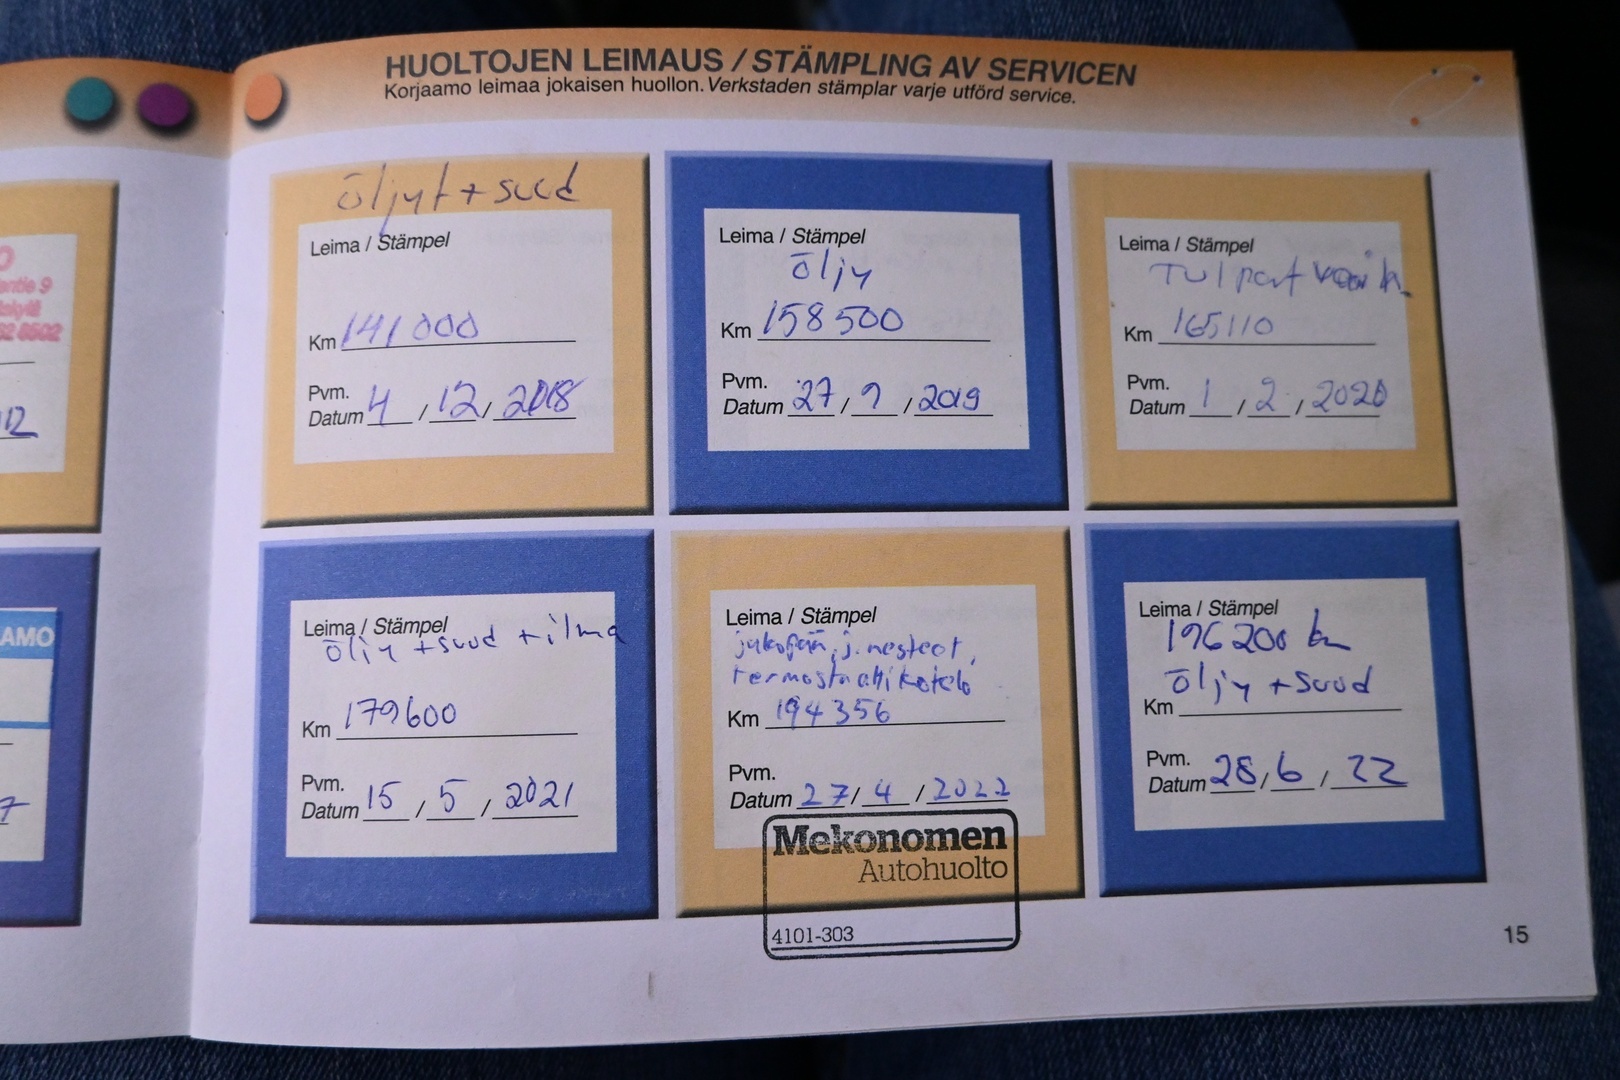 HUOLTOJEN LEIMAUS / STÄMPLING AV SERVICEN
Korjaamo leimaa jokaisen huollon. Verkstaden stämplar varje utförd service.
öljyt + suod
Leima / Stämpel
Km 141000
Pvm.
Datum 4 / 12 / 2018
Leima / Stämpel
öljy
Km 158500
Pvm.
Datum 27 / 9 / 2019
Leima / Stämpel
Tulpat vaih.
Km 165110
Pvm.
Datum 1 / 2 / 2020
Leima / Stämpel
öljy + suod + ilma
Km 179600
Pvm.
Datum 15 / 5 / 2021
Leima / Stämpel
jakopää, j. nesteet,
termostaattikotelo
Km 194356
Pvm.
Datum 27 / 4 / 2022
Mekonomen
Autohuolto
4101-303
Leima / Stämpel
196200 km
öljy + suod
Km
Pvm.
Datum 28 / 6 / 22
15
O
entie 9
62 8602
12
AMO
7